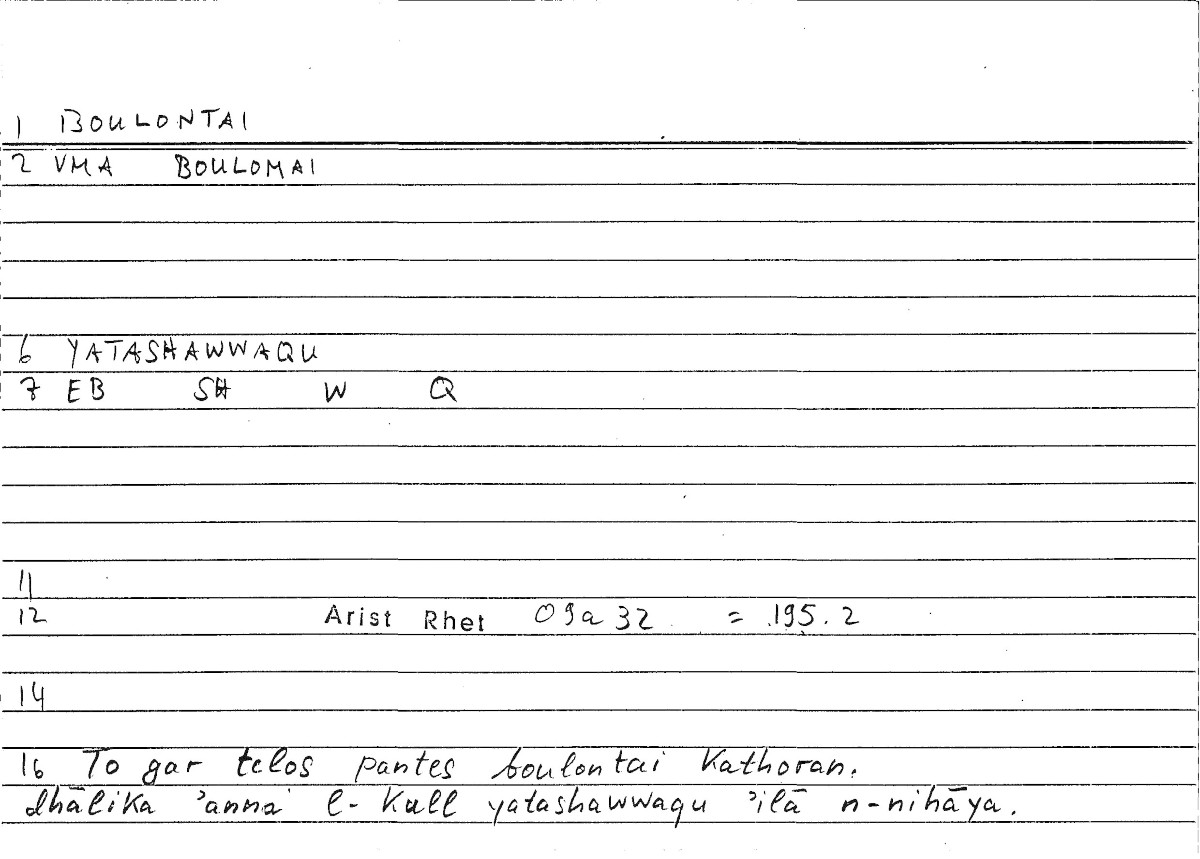 1 BOULONTAI
2 VMA BOULOMAI
6 YATASHAWWAQU
7 EB SH W Q
11
12 Arist Rhet 09a 32 = 195.2
14
16 To gar telos pantes boulontai Kathoran.
dhālika 'anna l-Kull yatashawwaqu 'ilā n-nihāya.